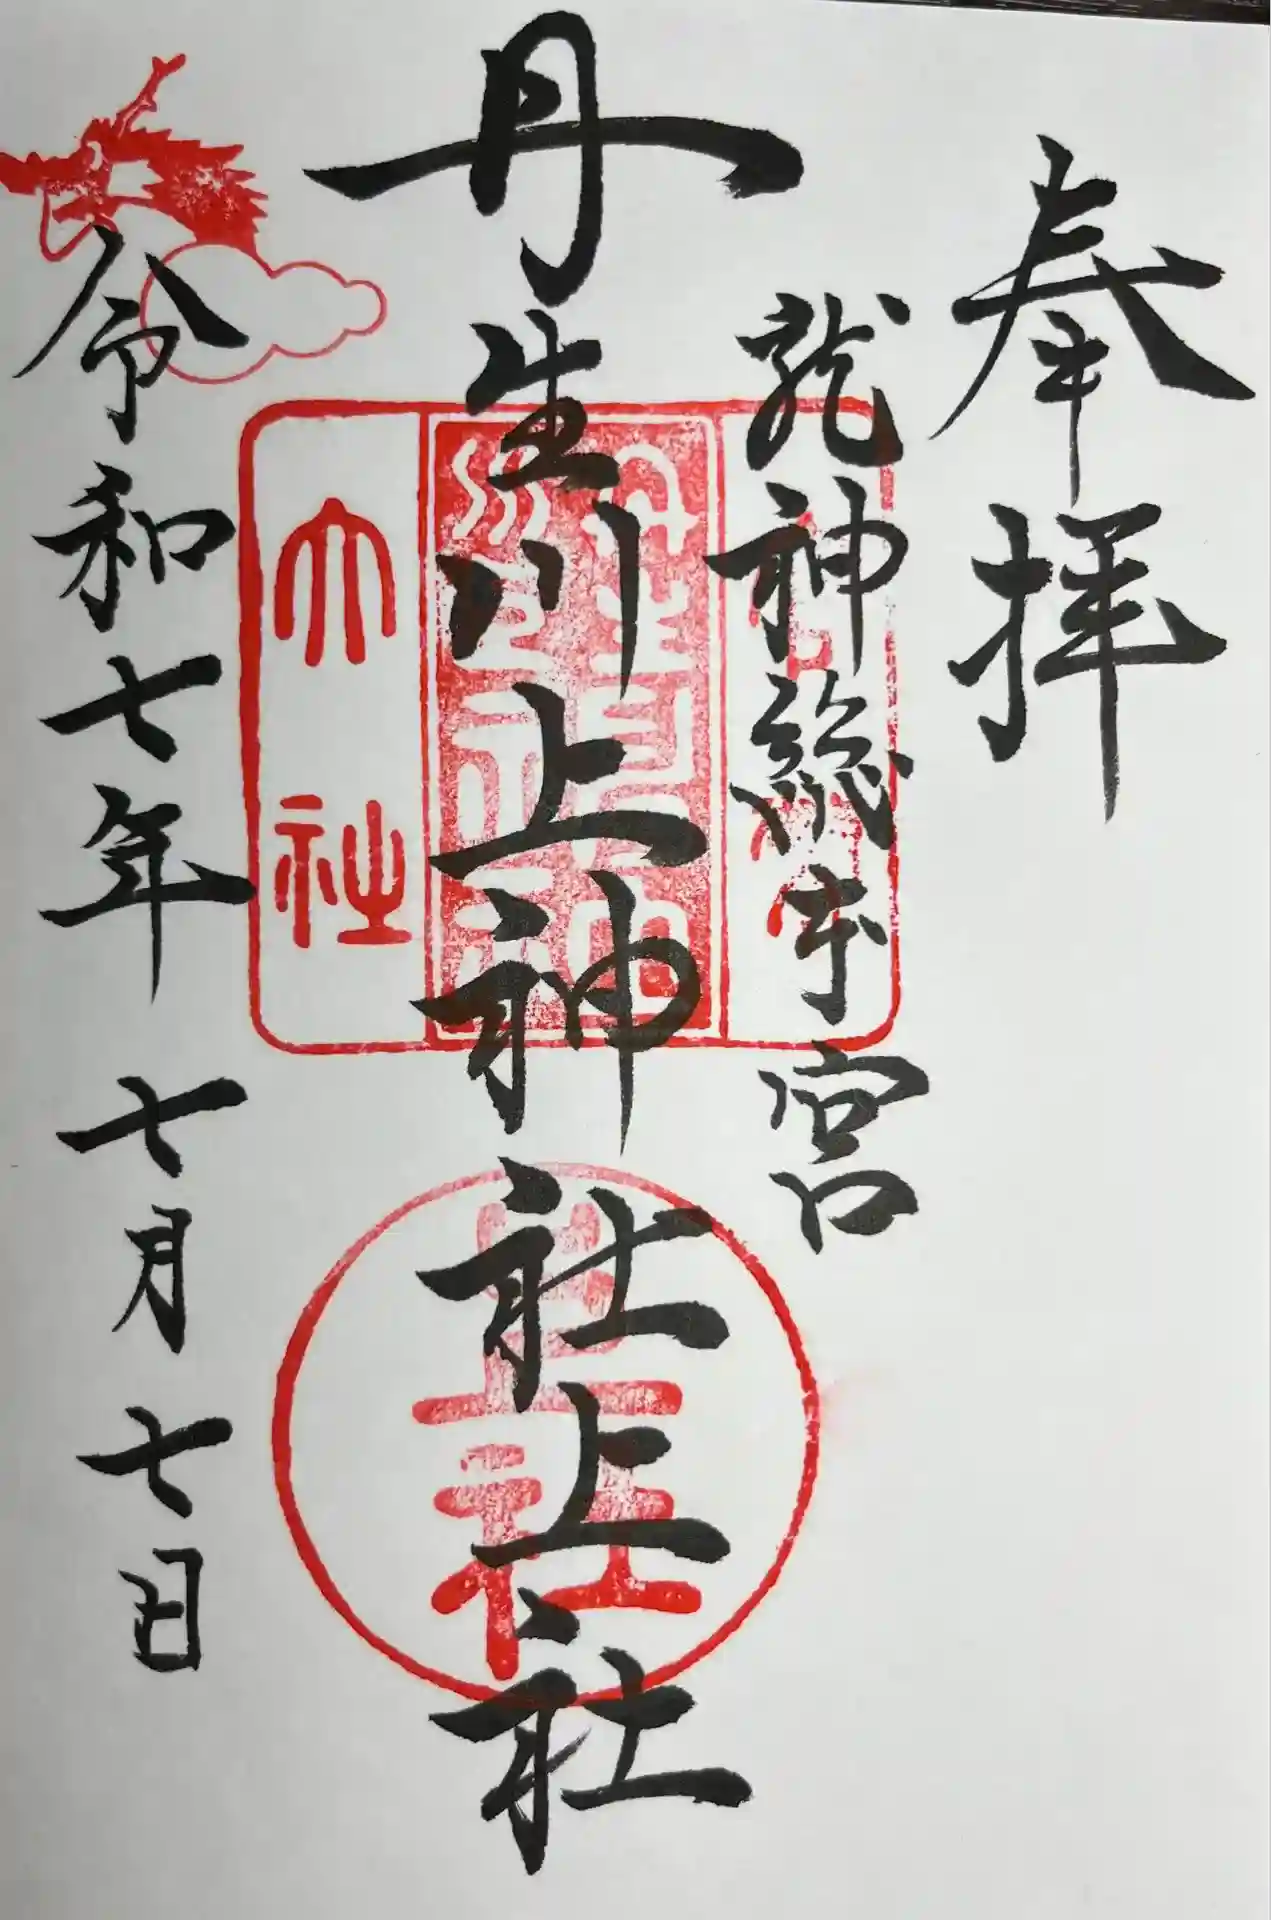 奉拝
龍神総本宮
丹生川上神社上社
令和七年 七月七日
大社
上社